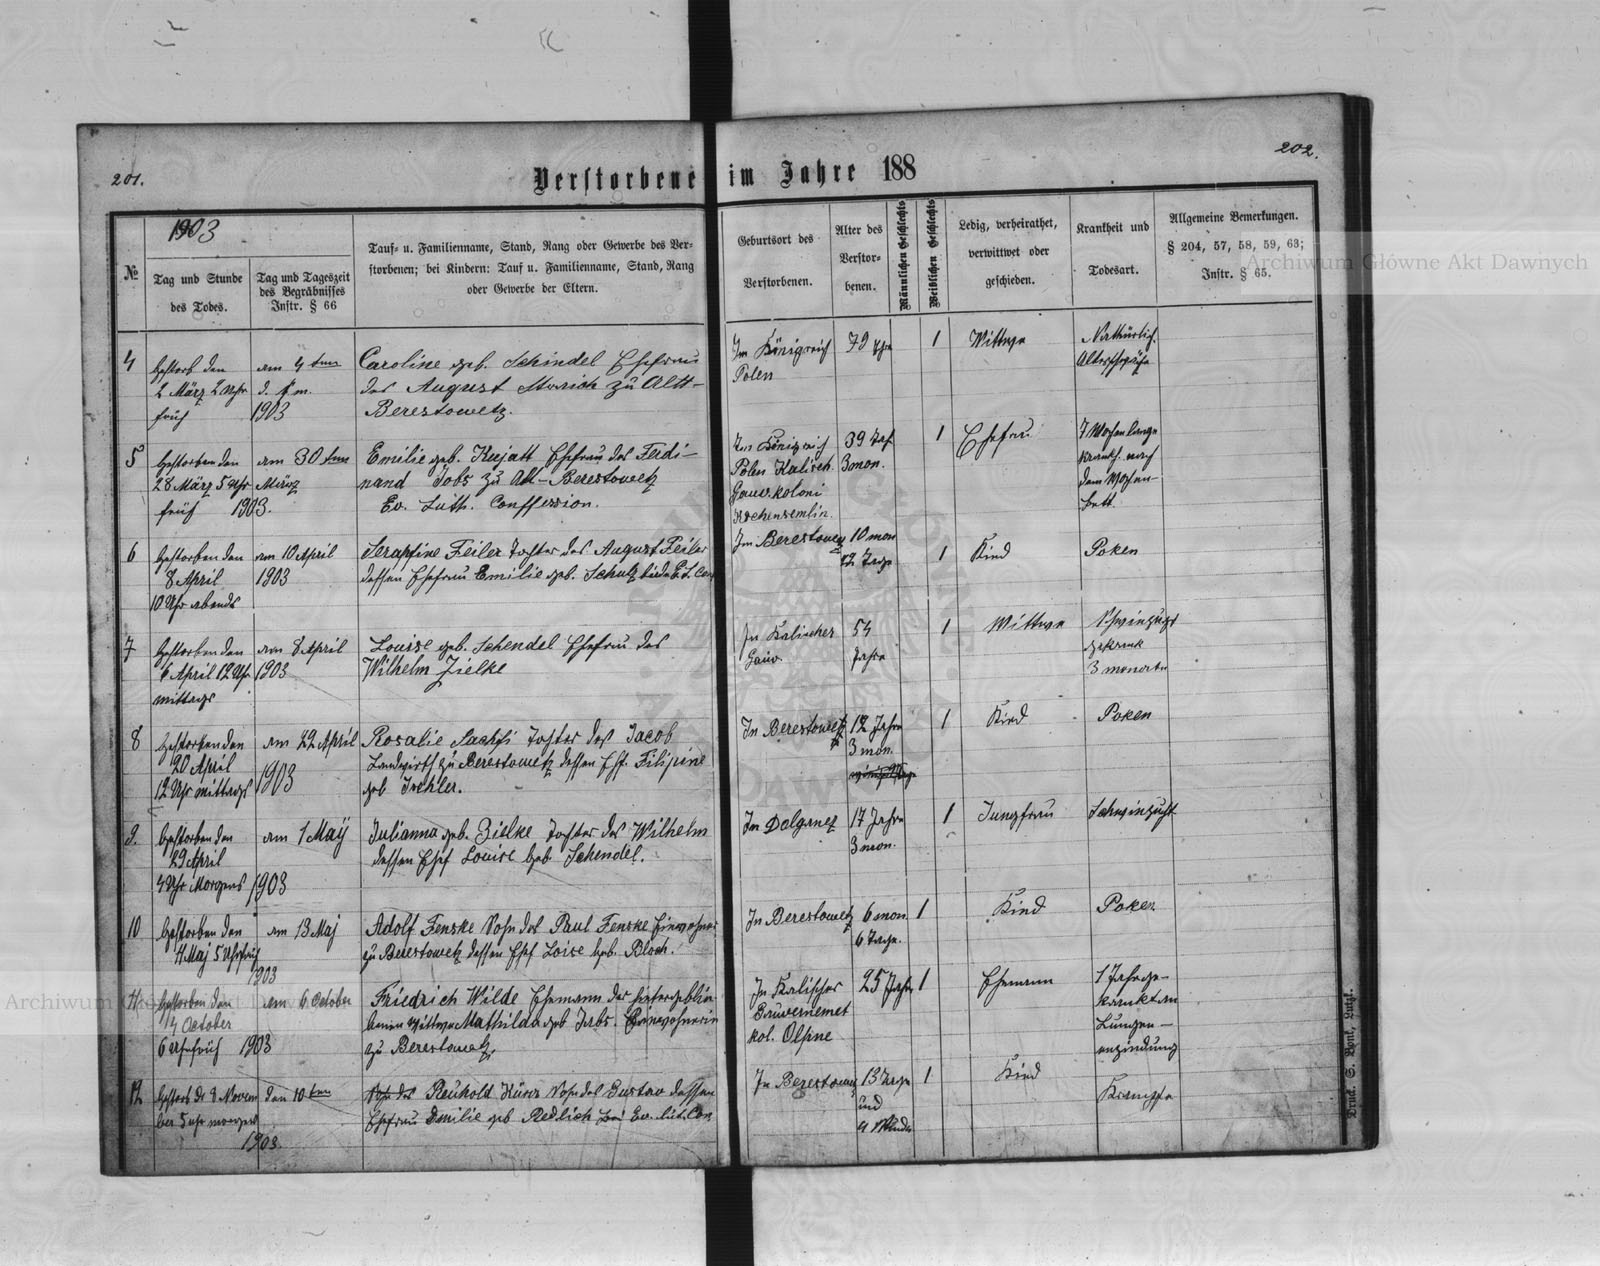 201.
202.
Verstorbene im Jahre 188
1903
№
Tag und Stunde
des Todes.
Tag und Tageszeit
des Begräbnisses
Instr. § 66
Tauf- u. Familienname, Stand, Rang oder Gewerbe des Ver-
storbenen; bei Kindern: Tauf u. Familienname, Stand, Rang
oder Gewerbe der Eltern.
Geburtsort des
Verstorbenen.
Alter des
Verstor-
benen.
Männlichen Geschlechts
Weiblichen Geschlechts
Ledig, verheirathet,
verwittwet oder
geschieden.
Krankheit und
Todesart.
Allgemeine Bemerkungen.
§ 204, 57, 58, 59, 63;
Instr. § 65.
4
Gestorb den
2 März 2 Uhr
früh
am 4 ten
d. m.
1903
Caroline geb. Schindel Ehefrau
des August zu Altt-
Berestowetz.
Im Königreich
Polen
79
1
Wittwe
Nathürlich.
Altersschwäche
5
Gestorben den
28 März 5 Uhr
früh
am 30 ten
März
1903.
Emilie geb. Kujatt Ehefrau des Ferdi-
nand Jobs zu Alt-Berestowetz
Ev. Luth. Conffession.
Im Königreich
Polen Kalisch.
Gouv. koloni
39 Jah
3 mon.
1
Ehefrau
7 Wochen lange
krankh. nach
dem Wochen-
bett.
6
Gestorben den
8 April
10 Uhr abends
am 10 April
1903
Serapfine Feiler Tochter des August Feiler
dessen Ehefrau Emilie geb. Schulz beide E. L. Con
In Berestowetz
10 mon
12 Tage
1
Kind
Poken
7
Gestorben den
6 April 12 Uhr
mittags
am 8 April
1903
Louise geb. Schendel Ehefrau des
Wilhelm Zielke
In Kalischer
Gouv.
54
Jahre
1
Wittwe
Schwinzugt
gekrank
3 monate
8
Gestorben den
20 April
12 Uhr mittags
am 22 April
1903
Rosalie Tochter des Jacob
Landwirth zu Berestowetz dessen Ehf. Filipine
geb
In Berestowetz
12 Jahre
3 mon.
1
Kind
Poken
9.
Gestorben den
29 April
4 Uhr Morgens
am 1 Maÿ
1903
Julianna geb. Zielke Tochter des Wilhelm
dessen Ehef Louise geb Schendel.
In Dolganez
17 Jahre
3 mon.
1
Jungfrau
Schwinzucht
10
Gestorben den
11 Maj 5 Uhr früh
am 13 Maj
1903
Adolf Fenske Sohn des Paul Fenske Einwohner
zu Berestowetz dessen Ehef Loise geb. Bloch.
In Berestowetz
6 mon.
6 Tage.
1
Kind
Poken
11
Gestorben den
4 October
6 Uhr früh
am 6 October
1903
Friedrich Wilde Ehemann der hintergeblie
benen Wittwe Mathilda geb Jobs. Einwohnerin
zu Berestowetz.
In Kalischer
Gouvernemet
kol. Olpine
25 Jahr
1
Ehemann
1 Jahr ge-
krankt an
Lungen-
enzindung
12
Gestorb d. 8 Novem
ber 5 uhr morgens
den 10 ten
1903
Sohn des Reinhold Kunz Sohn des Gustav dessen
Ehefrau Emilie geb Redlich Ev. lut. Con
In Berestowetz
13 Tage
und
4 Stunde
1
Kind
Krampfe
Druck. S. Bont, Lutzk.
Archiwum Główne Akt Dawnych
Archiwum Główne Akt Dawnych